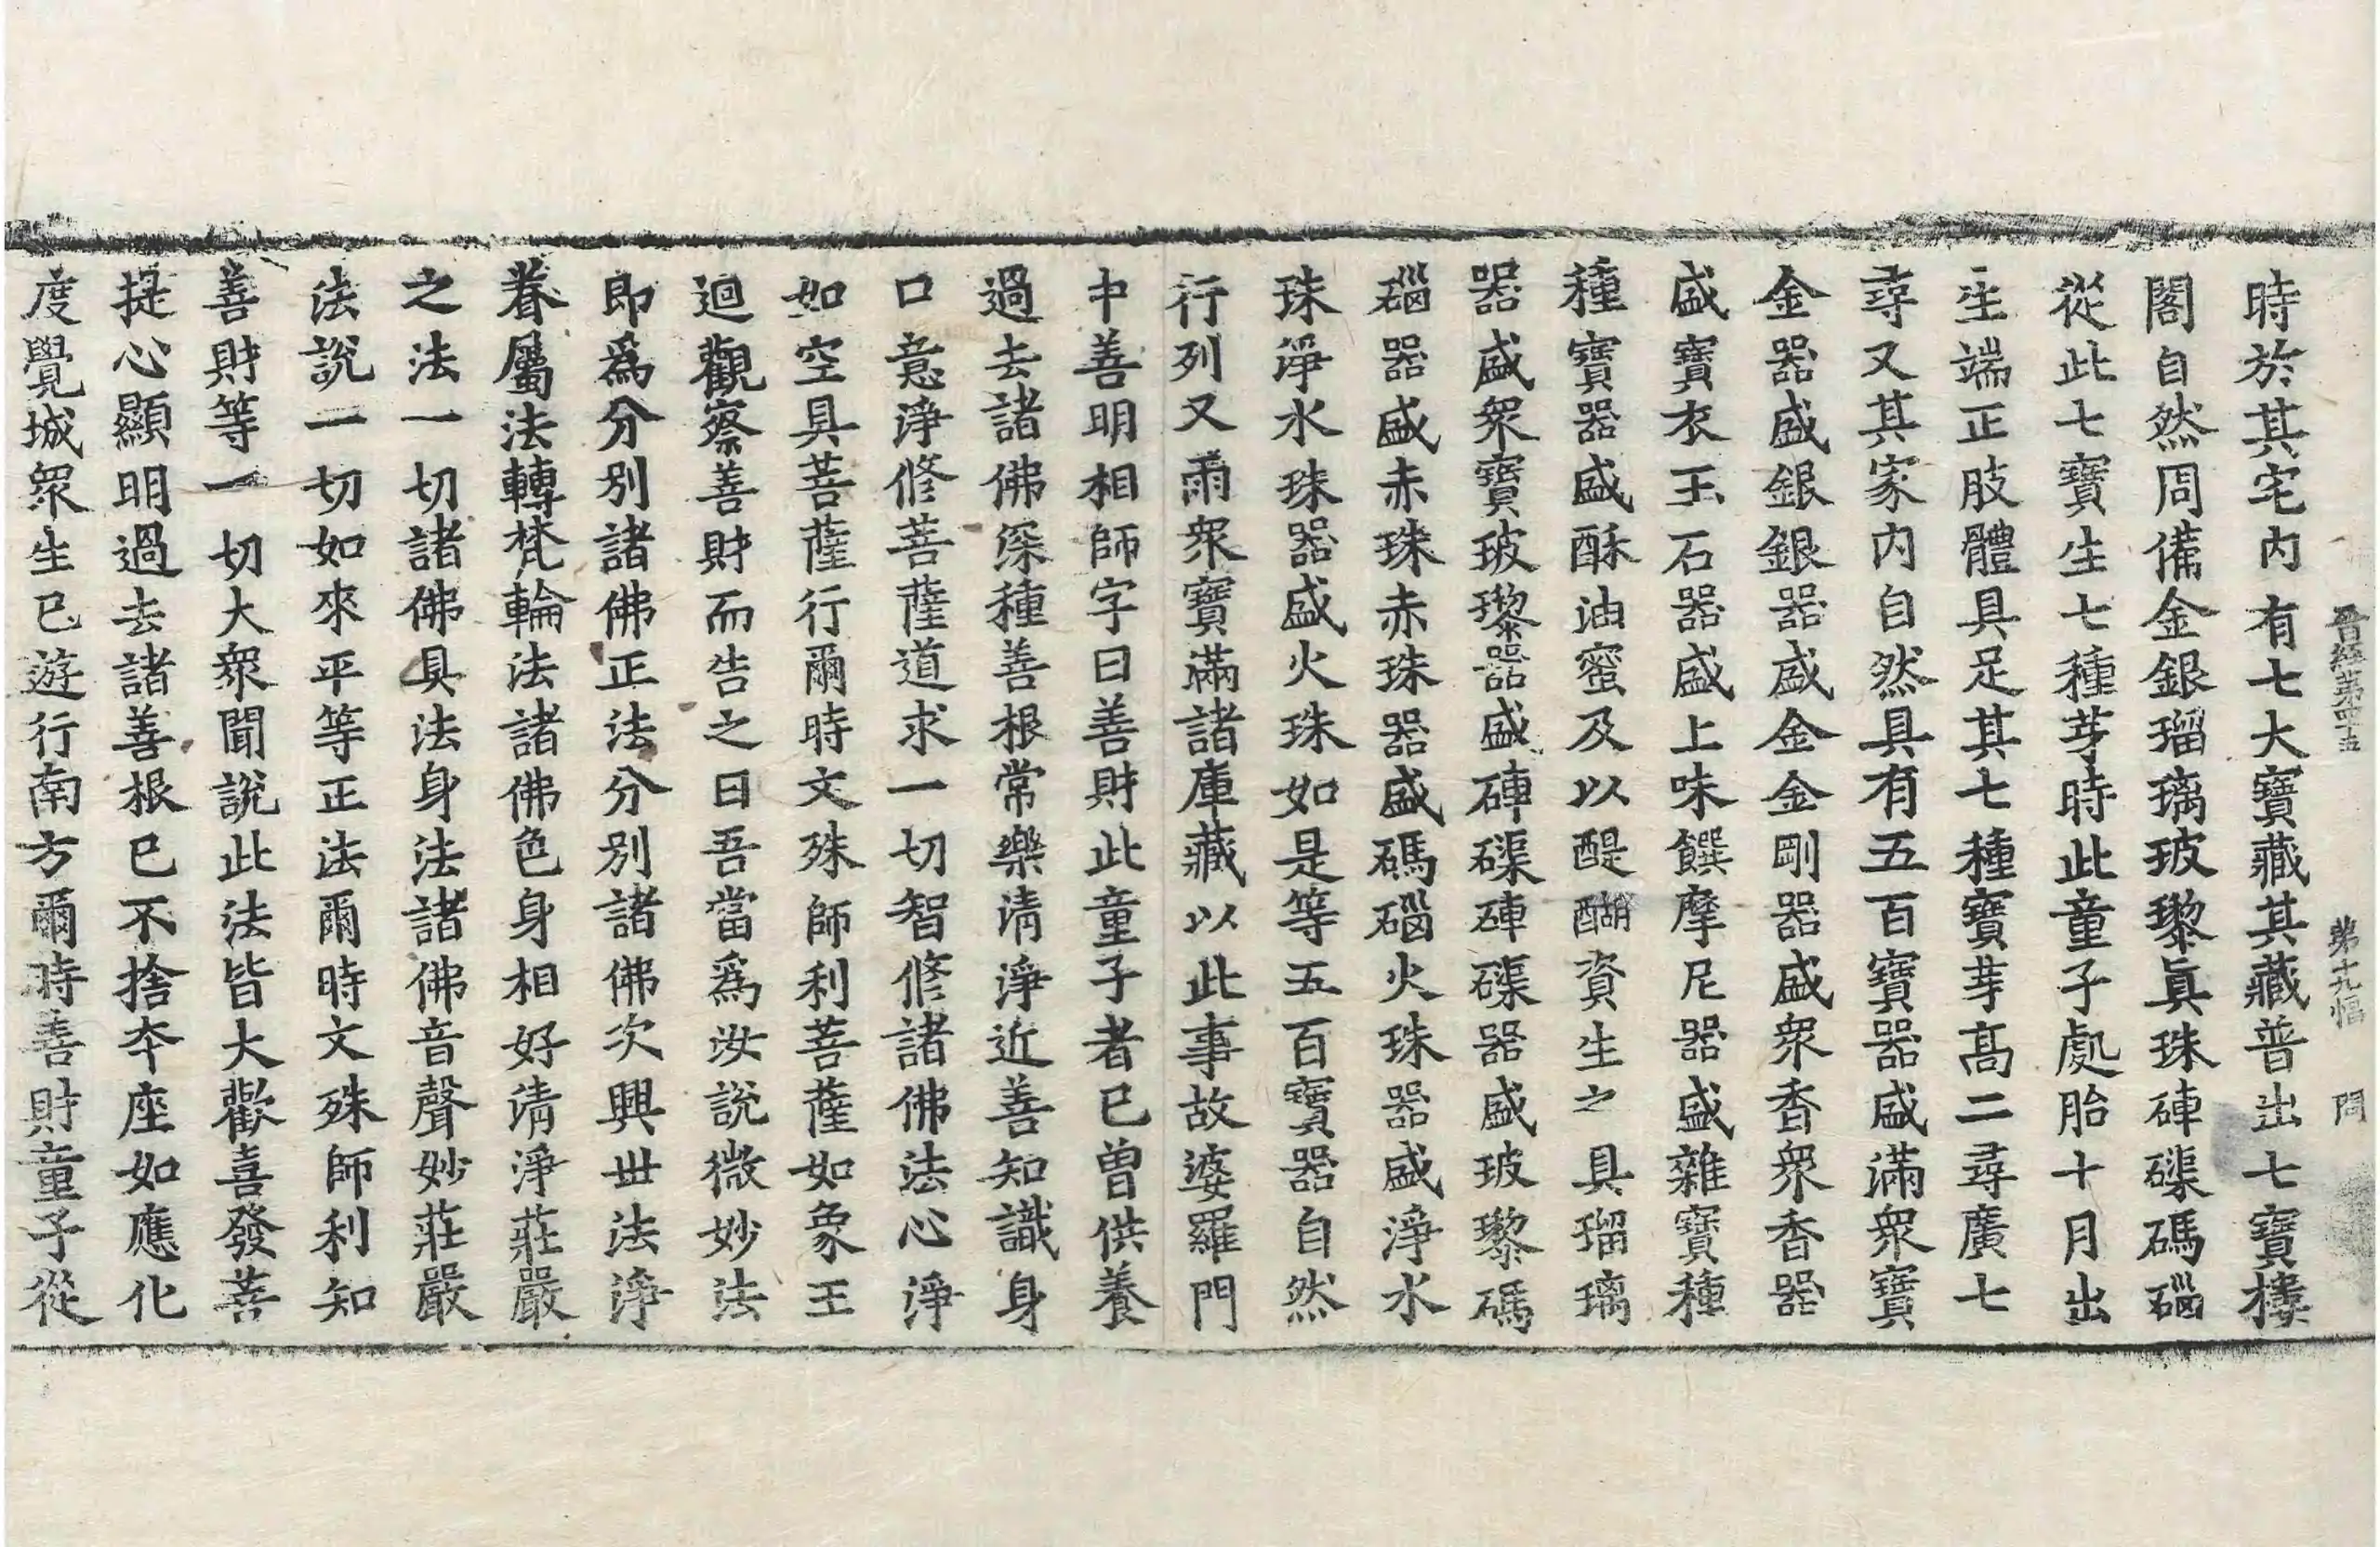 晉經第四十五 第十九幅 問
時於其宅内有七大寶藏其藏普出七寶樓
閣自然周備金銀瑠璃玻瓈眞珠硨磲碼碯
從此七寶生七種芽時此童子處胎十月出
生端正肢體具足其七種寶芽髙二尋廣七
尋又其家内自然具有五百寶器盛滿衆寶
金器盛銀銀器盛金金剛器盛衆香衆香器
盛寶衣玉石器盛上味饌摩尼器盛雜寶種
種寶器盛酥油蜜及以醍醐資生之具瑠璃
器盛衆寶玻瓈器盛硨磲硨磲器盛玻瓈碼
碯器盛赤珠赤珠器盛碼碯火珠器盛淨水
珠淨水珠器盛火珠如是等五百寶器自然
行列又雨衆寶滿諸庫藏以此事故婆羅門
中善明相師字曰善財此童子者已曽供養
過去諸佛深種善根常樂清淨近善知識身
口意淨修菩薩道求一切智修諸佛法心淨
如空具菩薩行爾時文殊師利菩薩如象王
迴觀察善財而告之曰吾當爲汝說微妙法
即爲分别諸佛正法分别諸佛次興世法淨
眷屬法轉梵輪法諸佛色身相好清淨莊嚴
之法一切諸佛具法身法諸佛音聲妙莊嚴
法說一切如來平等正法爾時文殊師利知
善財等一切大衆聞說此法皆大歡喜發菩
提心顯明過去諸善根已不捨夲座如應化
度覺城衆生已遊行南方爾時善財童子從